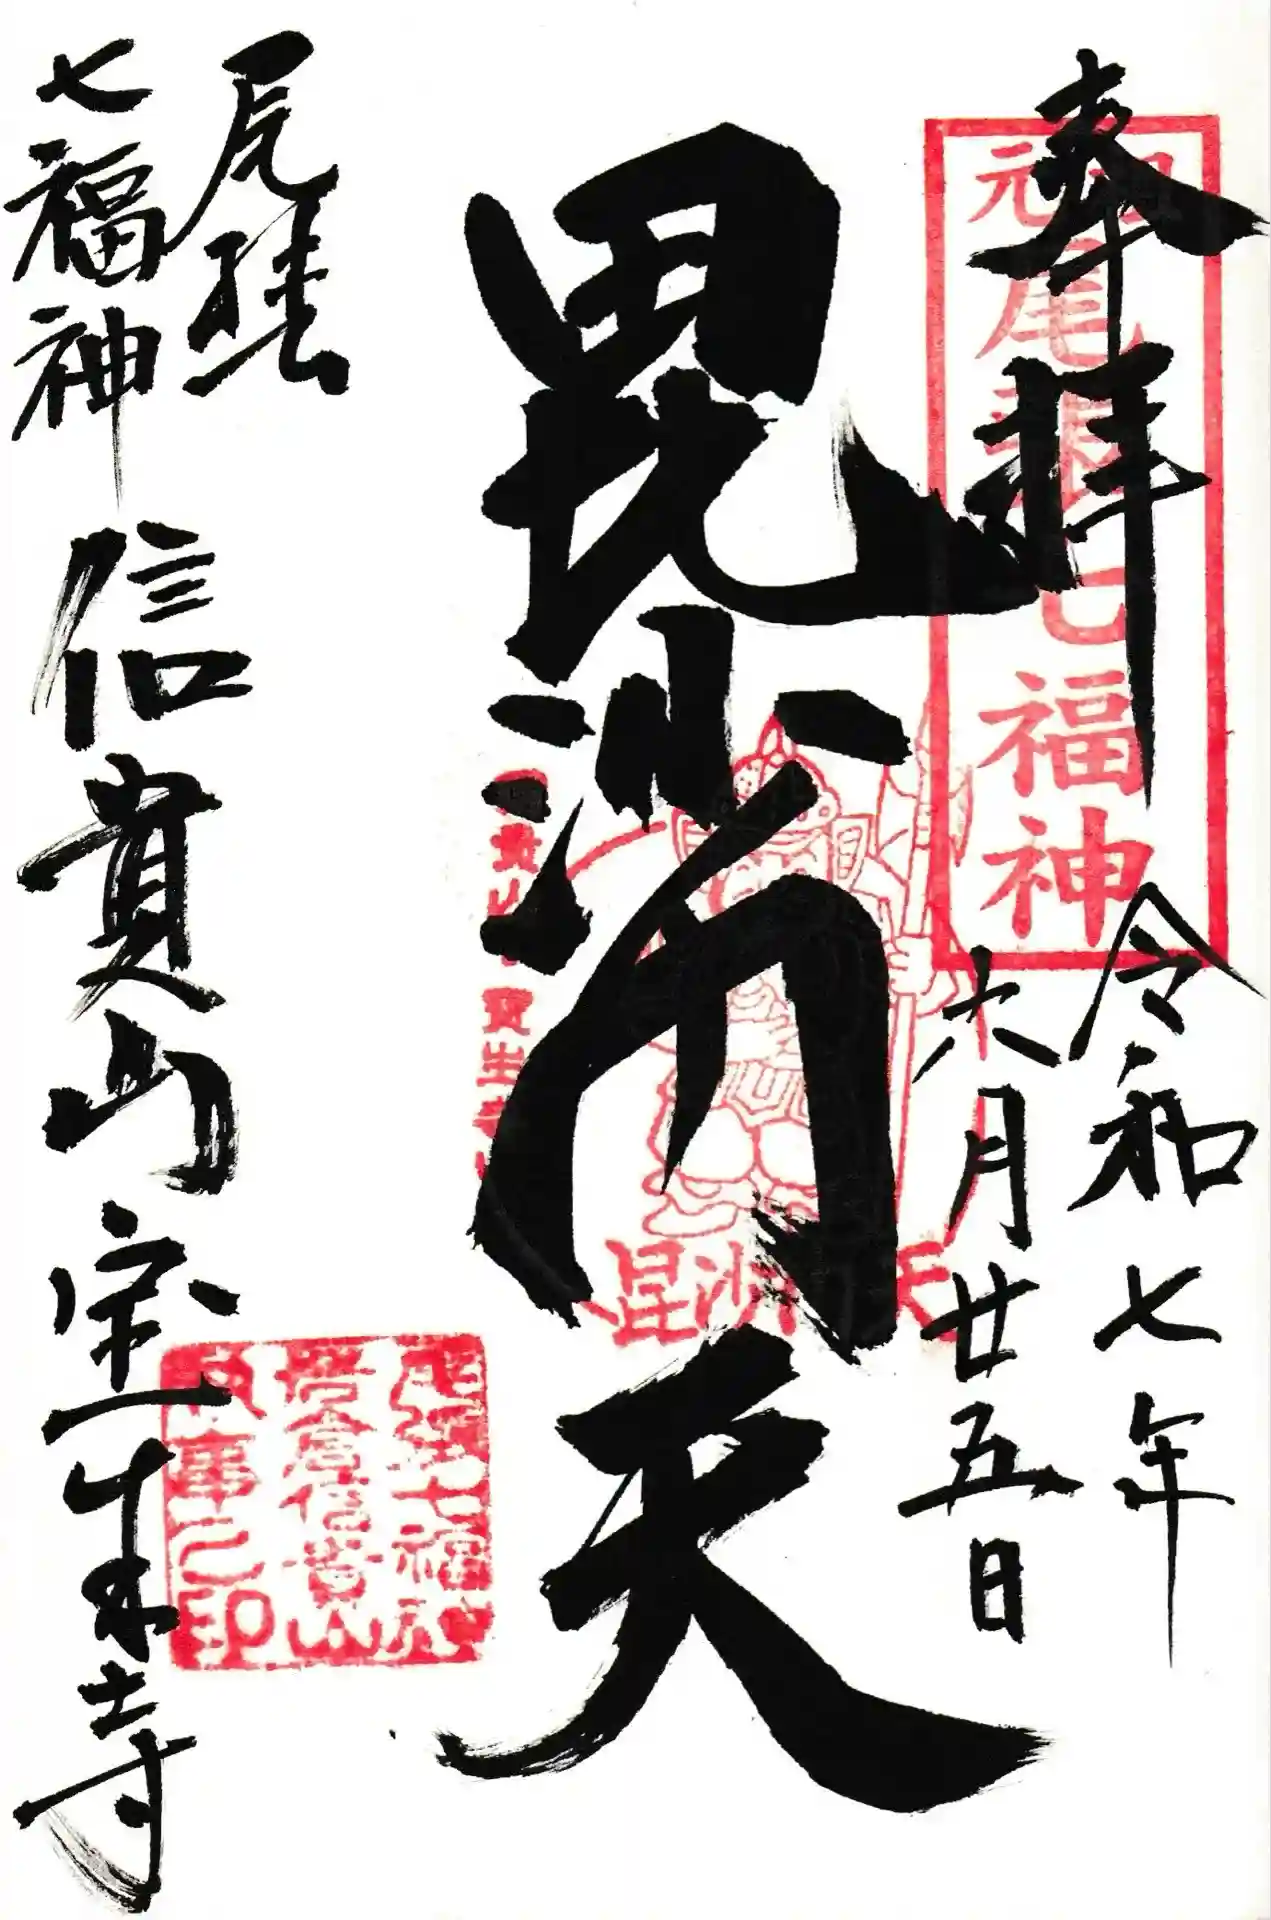 奉拝
令和七年
六月廿五日
毘沙門天
尾張
七福神
信貴山宝生寺
元祖
尾張七福神
毘沙門天
尾張七福神
岩倉信貴山
之印